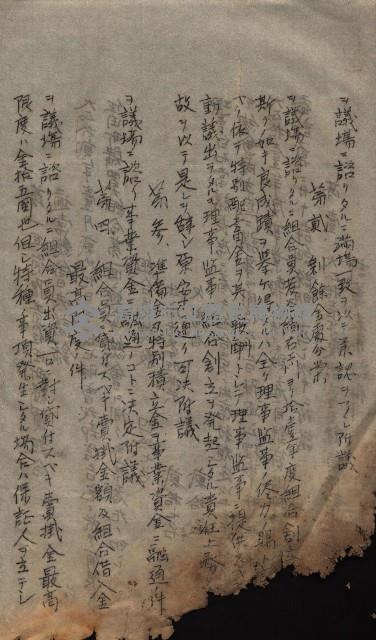 ヲ議場ニ諮リタルニ満場一致ヲ以テ承認ヲナシ附議
第貳 剰餘金處分案
ヲ議場ニ諮リタルニ組合員若 拾壹年度組合創立
斯ノ如キ良成績ヲ擧ゲ得タルハ全ク理事監事
ベク依テ特別配當金ヲ其ノ報酬トシテ理事監事ニ提供
動議出ヅルヤ理事監事ハ組合創立ヲ發起シタル責任上
故ヲ以テ是レヲ辞シ原案ノ通リ可決附議
第参 準備金及特別積立金ヲ事業資金ニ融通ノ件
ヲ議場ニ諮リ事業資金ニ融通ノコトニ決定附議
第四 組合員ニ貸付スベキ賣掛金額及組合借入金
最高限度ノ件
ヲ議場ニ諮リタルニ組合員出資一口ニ對シ貸付スベキ賣掛金最高
限度ハ金拾五圓也但シ特種ノ事項發生シタル場合ハ保証人ヲ立テシ